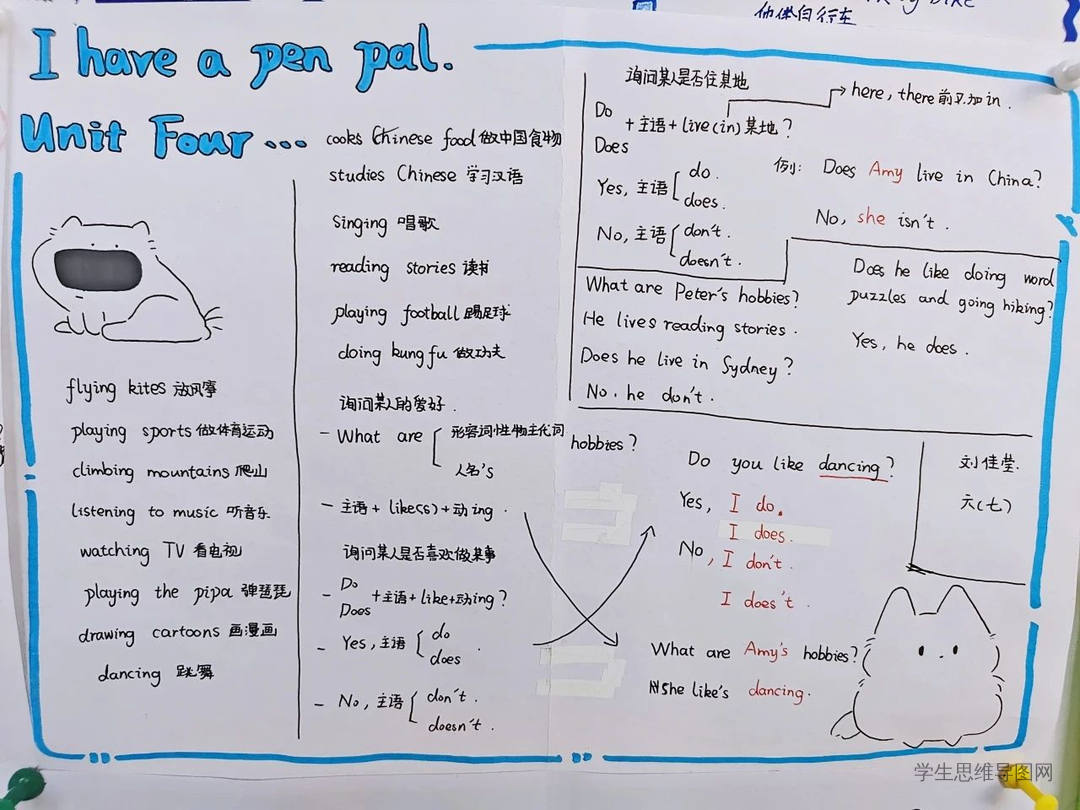 他骑自行车
I have a pen pal.
Unit Four...
flying kites 放风筝
playing sports 做体育运动
climbing mountains 爬山
listening to music 听音乐
watching TV 看电视
playing the pipa 弹琵琶
drawing cartoons 画漫画
dancing 跳舞
cooks Chinese food 做中国食物
studies Chinese 学习汉语
singing 唱歌
reading stories 读书
playing football 踢足球
doing kung fu 做功夫
询问某人的爱好.
- What are 形容词性物主代词 hobbies?
人名's
- 主语 + like(s) + 动ing.
询问某人是否喜欢做某事
- Do
Does + 主语 + like + 动ing?
- Yes, 主语 do
does.
- No, 主语 don't.
doesn't.
询问某人是否住某地
here, there 前不加 in.
Do
Does + 主语 + live (in) 某地?
Yes, 主语 do.
does.
No, 主语 don't.
doesn't.
例: Does Amy live in China?
No, she isn't.
What are Peter's hobbies?
He lives reading stories.
Does he live in Sydney?
No. he don't.
Does he like doing word
puzzles and going hiking?
Yes, he does.
Do you like dancing?
Yes, I do.
I does.
No, I don't.
I does't.
What are Amy's hobbies?
She like's dancing.
刘佳莹.
六(七)
学生思维导图网